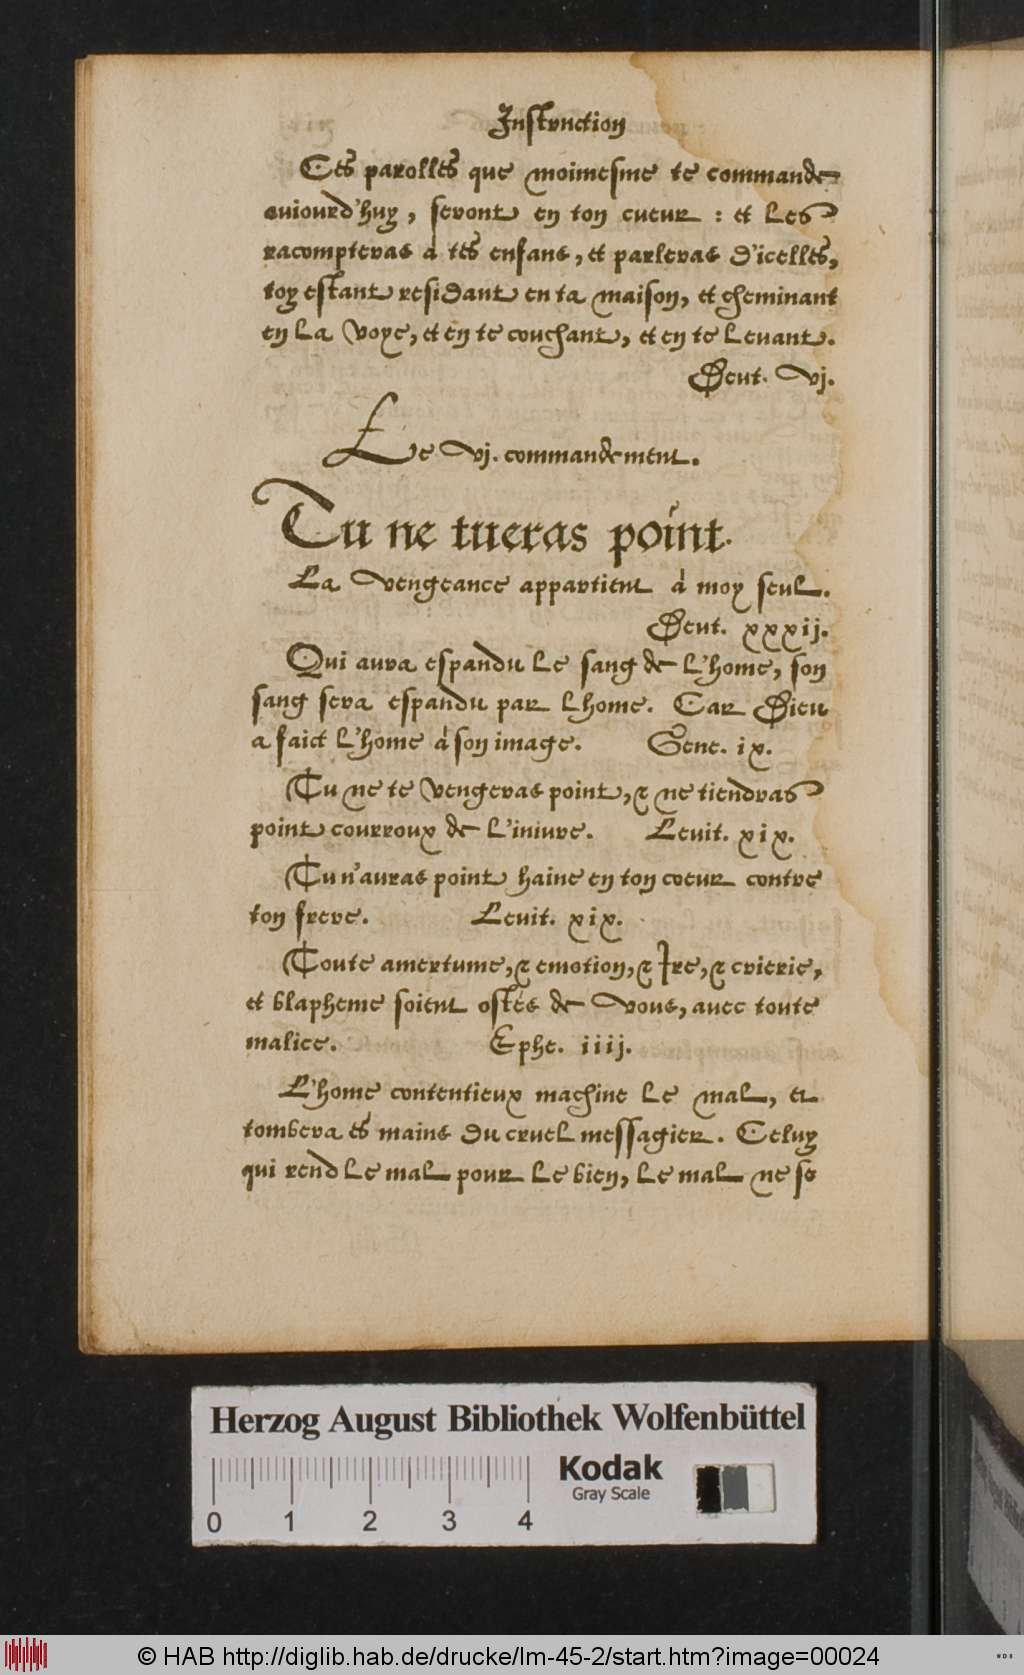 Instruction
Ces parolles que moimesme te commande
auiourd'huy, seront en ton cueur : et les
racompteras à tes enfans, et parleras d'icelles,
toy estant residant en ta maison, et cheminant
en la voye, et en te couchant, et en te levant.
Deut. vj.
Le vj. commandement.
Tu ne tueras point.
La vengeance appartient à moy seul.
Deut. xxxij.
Qui aura espandu le sang de l'home, son
sang sera espandu par lhome. Car Dieu
a faict l'home à son image. Gene. ix.
Tu ne te vengeras point, & ne tiendras
point courroux de l'iniure. Levit. xix.
Tu n'auras point haine en ton coeur contre
ton frere. Levit. xix.
Toute amertume, & emotion, & Ire, & crierie,
et blapheme soient ostée de vous, avec toute
malice. Ephe. iiij.
L'home contentieux machine le mal, et
tombera és mains du cruel messagier. Celuy
qui rend le mal pour le bien, le mal ne se
Herzog August Bibliothek Wolfenbüttel
Kodak
Gray Scale
0 1 2 3 4
© HAB http://diglib.hab.de/drucke/lm-45-2/start.htm?image=00024